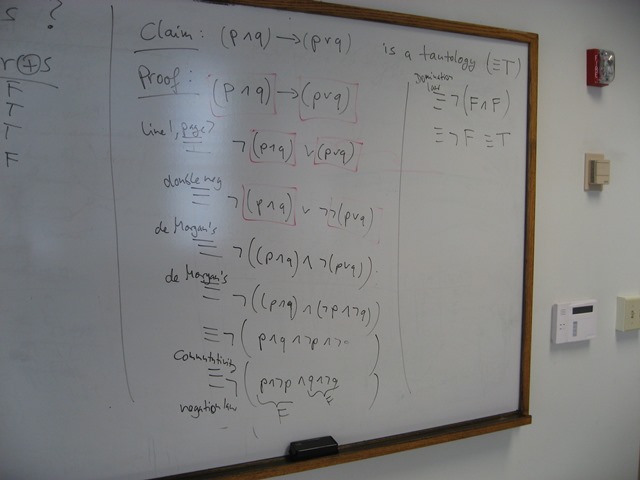 s ?
r⊕s
F
T
T
F
Claim: (p∧q) → (p∨q) is a tautology (≡T)
Proof: (p∧q) → (p∨q)
Line 1, page 7
≡ ¬(p∧q) ∨ (p∨q)
double neg
≡ ¬(p∧q) ∨ ¬¬(p∨q)
de Morgan's
≡ ¬((p∧q) ∧ ¬(p∨q))
de Morgan's
≡ ¬((p∧q) ∧ (¬p∧¬q))
≡ ¬(p∧q∧¬p∧¬ )
Commutativity
≡ ¬(p∧¬p ∧q∧¬q)
negation law F F
Domination law
≡ ¬(F∧F)
≡ ¬F ≡ T